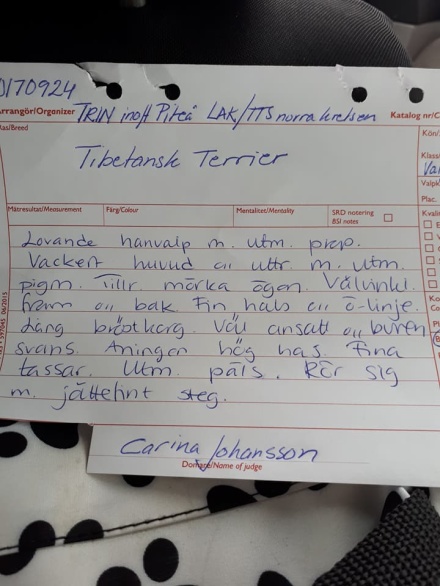 170924
Arrangör/Organizer TRIN inoff Piteå LAK/TTS norra kretsen Katalog nr/C
as/Breed
Kön/
Tibetansk Terrier
Klass
Va
Valpk
Plac.
Mätresultat/Measurement Färg/Colour Mentalitet/Mentality SRD notering
BSI notes
Kvali
Lovande hanvalp m. utm. prop.
Vackert huvud o uttr. m. utm.
pigm. Tillr. mörka ögon. Välvinkl.
fram o bak. Fin hals o ö-linje.
Lång bröstkorg. Väl ansatt o buren
svans. Aningen hög has. Fina
tassar. Utm. päls. Rör sig
m. jättefint steg.
06/2015
Carina Johansson
Domare/Name of judge